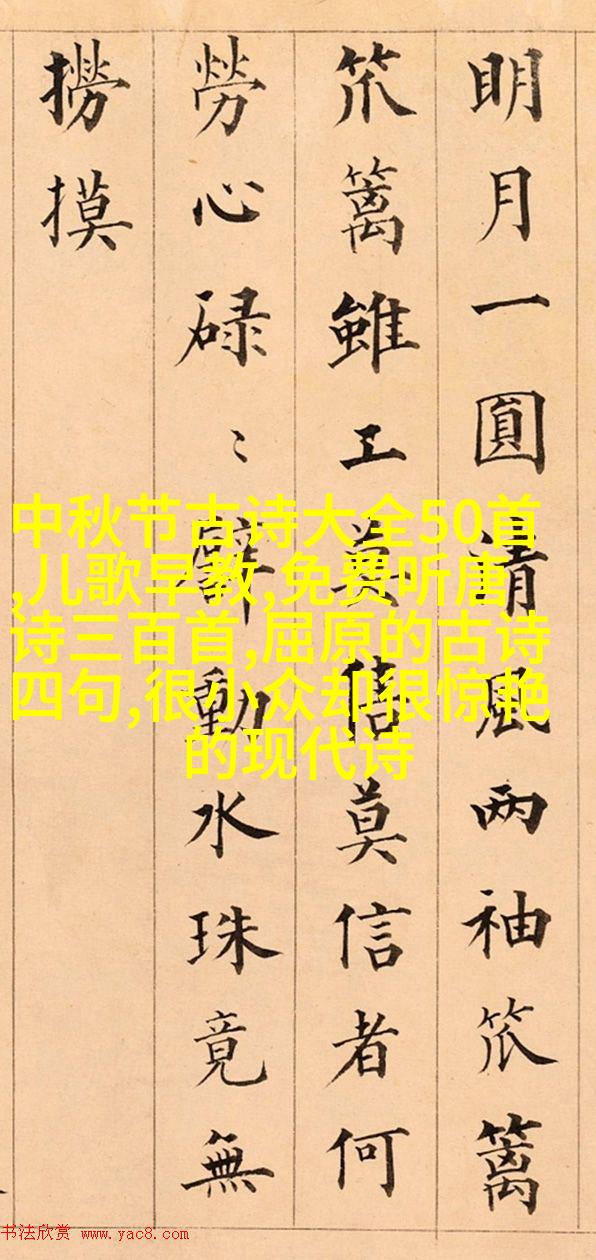 明月一圓清風两袖笊篱
笊篱雖工莫信莫信者何
勞心碌〻動水珠竟無
撈摸
中秋节古诗大全50首
,儿歌早教,免费听唐
诗三百首,屈原的古诗
四句,很小众却很惊艳
的现代诗
书法欣赏 www.yac8.com